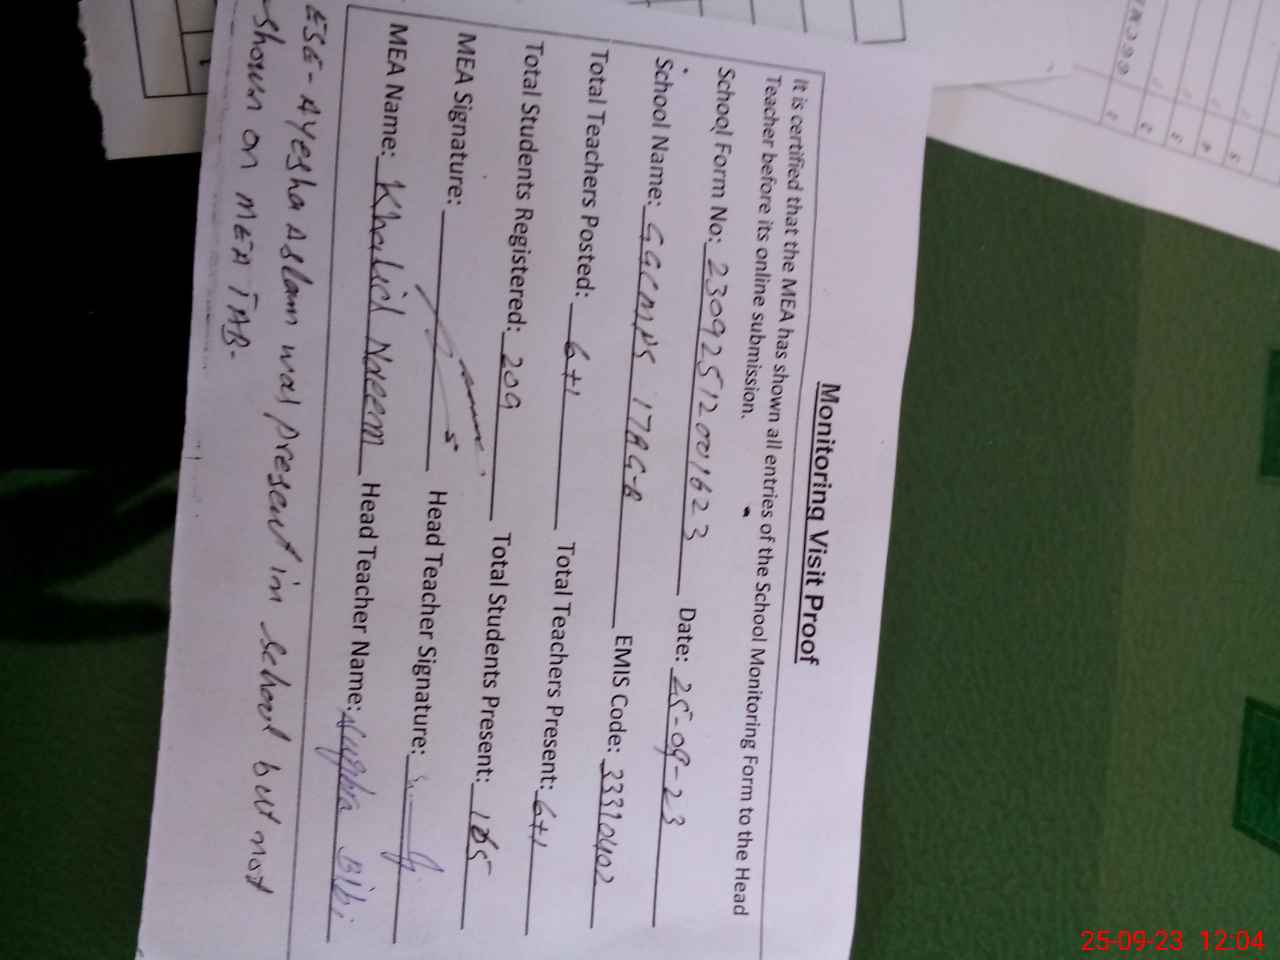 Monitoring Visit Proof
It is certified that the MEA has shown all entries of the School Monitoring Form to the Head
Teacher before its online submission.
School Form No: 23092512001623 Date: 25-09-23
School Name: GGCMPS 17AG-B EMIS Code: 33310402
Total Teachers Posted: 6+1 Total Teachers Present: 6+1
Total Students Registered: 209 Total Students Present: 165
MEA Signature: Head Teacher Signature:
MEA Name: Khalid Naeem Head Teacher Name: Bibi
ESE- Ayesha Aslam was present in school but not
shown on MEA TAB-
25-09-23 12:04